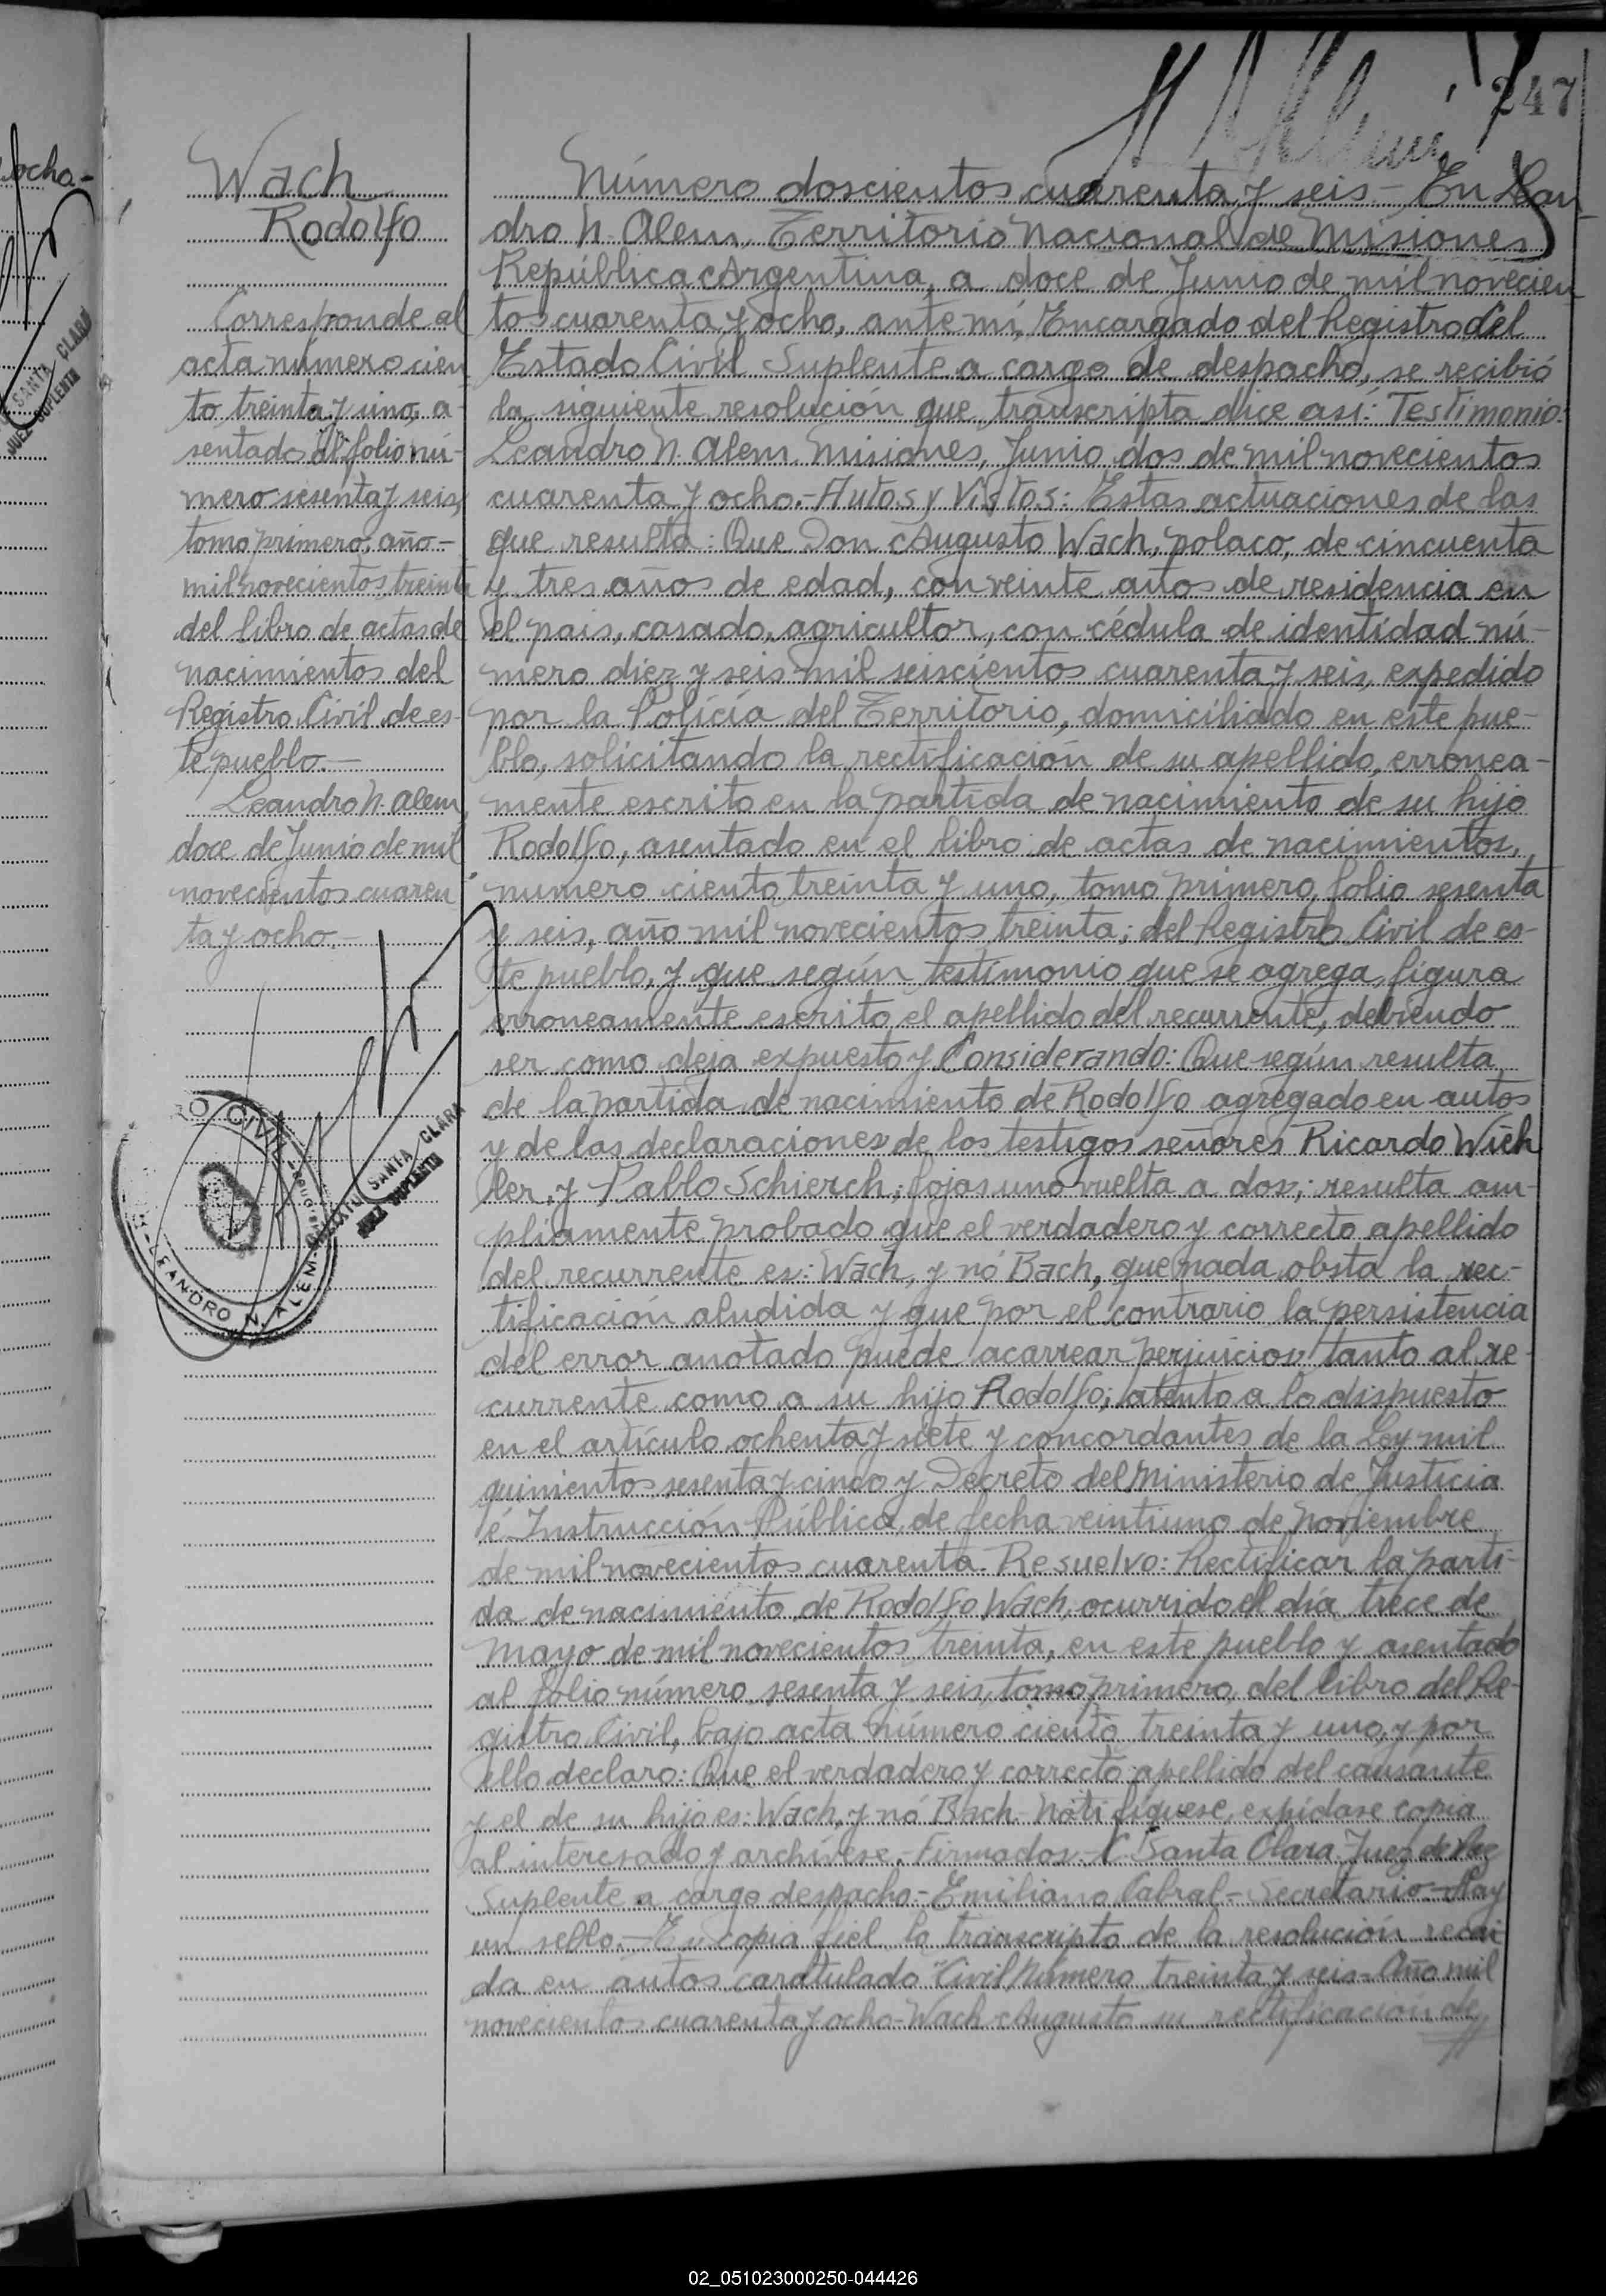 247
ocho.-
SANTA CLARA
JUEZ SUPLENTE
Wach
Rodolfo
Corresponde al
acta número cien
to treinta y uno, a-
sentado al folio nú-
mero sesenta y seis,
tomo primero, año-
mil novecientos treinta
del libro de actas de
nacimientos del
Registro Civil de es-
te pueblo.-
Leandro N. Alem,
doce de Junio de mil
novecientos cuaren
ta y ocho.-
SANTA CLARA
JUEZ SUPLENTE
RO CIVIL
LEANDRO N. ALEM
Número doscientos cuarenta y seis- En Lean-
dro N. Alem, Territorio Nacional de Misiones
República Argentina, a doce de Junio de mil novecien-
tos cuarenta y ocho, ante mí, Encargado del Registro del
Estado Civil Suplente a cargo de despacho, se recibió
la siguiente resolución que transcripta dice así: Testimonio:
Leandro N. Alem, Misiones, Junio dos de mil novecientos
cuarenta y ocho.- Autos y Vistos: Estas actuaciones de las
que resulta: Que Don Augusto Wach, polaco, de cincuenta
y tres años de edad, con veinte años de residencia en
el pais, casado, agricultor, con cédula de identidad nú-
mero diez y seis mil seiscientos cuarenta y seis, expedido
por la Policía del Territorio, domiciliado en este pue-
blo, solicitando la rectificación de su apellido, erronea-
mente escrito en la partida de nacimiento de su hijo
Rodolfo, asentado en el libro de actas de nacimientos,
numero ciento treinta y uno, tomo primero, folio sesenta
y seis, año mil novecientos treinta; del Registro Civil de es-
te pueblo, y que según testimonio que se agrega, figura
erroneamente escrito el apellido del recurrente, debiendo
ser como deja expuesto y Considerando: Que según resulta
de la partida de nacimiento de Rodolfo agregado en autos
y de las declaraciones de los testigos señores Ricardo Wich
ler, y Pablo Schierch; fojas uno vuelta a dos; resulta am-
pliamente probado que el verdadero y correcto apellido
del recurrente es: Wach, y nó Bach, que nada obsta la rec-
tificación aludida y que por el contrario la persistencia
del error anotado puede acarrear perjuicios tanto al re-
currente como a su hijo Rodolfo; atento a lo dispuesto
en el artículo ochenta y siete y concordantes de la Ley mil
quinientos sesenta y cinco y Decreto del Ministerio de Justicia
é Instrucción Pública, de fecha veintiuno de Noviembre
de mil novecientos cuarenta. Resuelvo: Rectificar la parti-
da de nacimiento de Rodolfo Wach, ocurrido el día trece de
Mayo de mil novecientos treinta, en este pueblo y asentado
al folio número sesenta y seis, tomo primero, del libro del Re-
gistro Civil, bajo acta número ciento treinta y uno, y por
ello declaro: Que el verdadero y correcto apellido del causante
y el de su hijo es: Wach, y nó Bach. Notifíquese, expídase copia
al interesado y archívese.- Firmados.- C. Santa Clara. Juez de Paz
Suplente a cargo despacho.- Emiliano Cabral- Secretario- Hay
un sello.- Es copia fiel lo transcripto de la resolución recai-
da en autos caratulado "Civil Número treinta y seis- Año mil
novecientos cuarenta y ocho- Wach Augusto su rectificación de
02_051023000250-044426